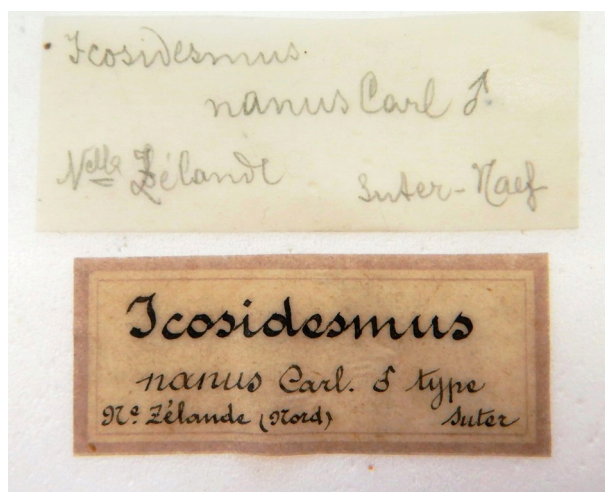 Icosidesmus
nanus Carl ♂
Nelle Zélande Suter-Naef
Icosidesmus
nanus Carl. ♂ type
Ne. Zélande (Nord) Suter